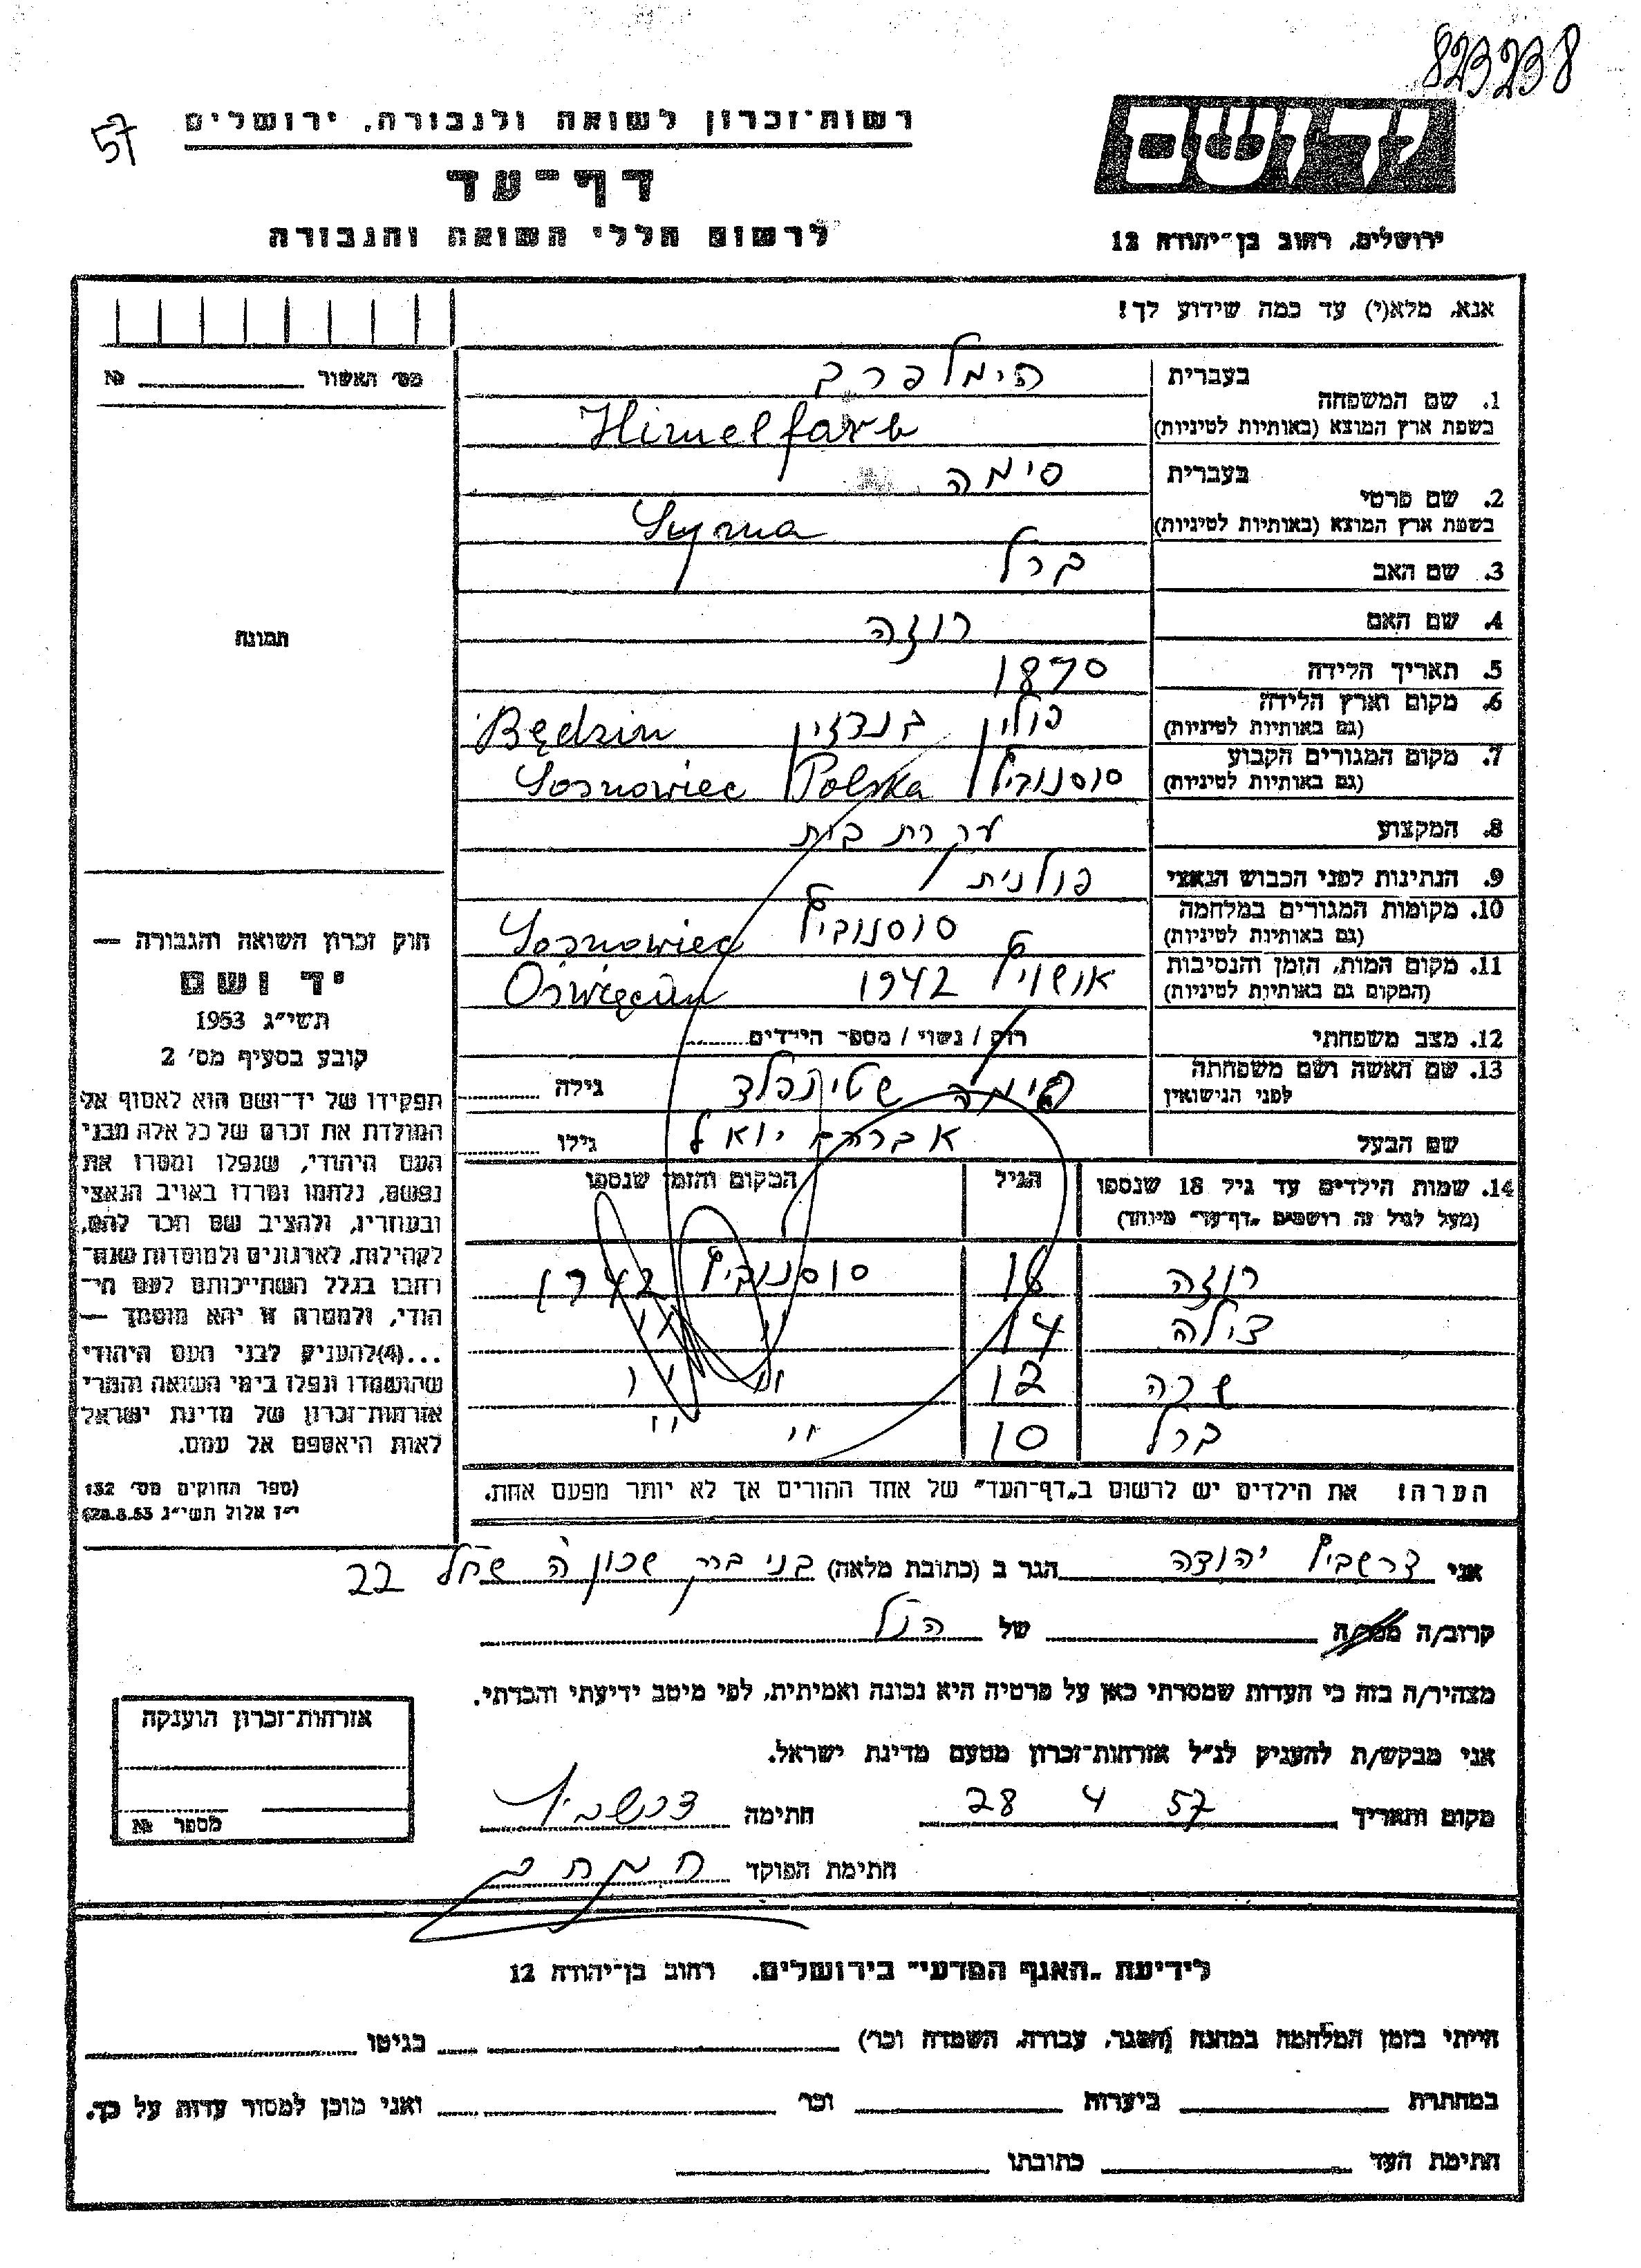 823238
57
רשות־זכרון לשואה ולגבורה, ירושלים
יד ושם
דף־עד
לרשום חללי השואה והגבורה
ירושלים, רחוב בן־יהודה 12
אנא, מלא(י) עד כמה שידוע לך!
מס׳ האשור № 
בעברית הימלפרב
1. שם המשפחה
בשפת ארץ המוצא (באותיות לטיניות) Himelfarb
בעברית סימה
2. שם פרטי
בשפת ארץ המוצא (באותיות לטיניות) Syma
3. שם האב ברל
4. שם האם רוזה
תמונה
5. תאריך הלידה 1870
6. מקום וארץ הלידה פולין בנדזין Będzin
(גם באותיות לטיניות)
7. מקום המגורים הקבוע סוסנוביץ Polska Sosnowiec
(גם באותיות לטיניות)
8. המקצוע עקרת בית
9. הנתינות לפני הכבוש הנאצי פולנית
10. מקומות המגורים במלחמה סוסנוביץ Sosnowiec
(גם באותיות לטיניות)
11. מקום המות, הזמן והנסיבות 1942 Oświęcim
(המקום גם באותיות לטיניות)
12. מצב משפחתי רווק / נשוי / מספר הילדים
13. שם האשה ושם משפחתה סימה שטינפלד גילה
לפני הנישואין
שם הבעל אברהם יואל גילו
14. שמות הילדים עד גיל 18 שנספו הגיל המקום והזמן שנספו
(מעל לגיל זה רושמים „דף־עד" מיוחד)
רוזה 16 סוסנוביץ 1942
צילה 14 " "
שרה 12 " "
ברל 10 " "
הערה! את הילדים יש לרשום ב„דף־העד" של אחד ההורים אך לא יותר מפעם אחת.
חוק זכרון השואה והגבורה —
יד ושם
תשי״ג 1953
קובע בסעיף מס׳ 2
תפקידו של יד־ושם הוא לאסוף אל
המולדת את זכרם של כל אלה מבני
העם היהודי, שנפלו ומסרו את
נפשם, נלחמו ומרדו באויב הנאצי
ובעוזריו, ולהציב שם וזכר להם,
לקהילות, לארגונים ולמוסדות שנח־
רבו בגלל השתייכותם לעם הי־
הודי, ולמטרה זו יהא מוסמך —
...(4)להעניק לבני העם היהודי
שהושמדו ונפלו בימי השואה והמרי
אזרחות־זכרון של מדינת ישראל
לאות היאספם אל עמם.
(ספר החוקים מס׳ 132
י״ז אלול תשי״ג 28.8.53)
אני יהודה הגר ב (כתובת מלאה) בני ברק שכון ה 22
קרוב/ה מכר/ה של הנ״ל
מצהיר/ה בזה כי העדות שמסרתי כאן על פרטיה היא נכונה ואמיתית, לפי מיטב ידיעתי והכרתי.
אני מבקש/ת להעניק לנ״ל אזרחות־זכרון מטעם מדינת ישראל.
מקום ותאריך 28 4 57 חתימה
חתימת הפוקד
אזרחות־זכרון הוענקה
מספר №
לידיעת „האגף המדעי" בירושלים. רחוב בן־יהודה 12
הייתי בזמן המלחמה במחנה (הסגר, עבודה, השמדה וכו׳) בגיטו
במחתרת ביערות וכו׳ ואני מוכן למסור עדות על כך.
חתימת העד כתובתו